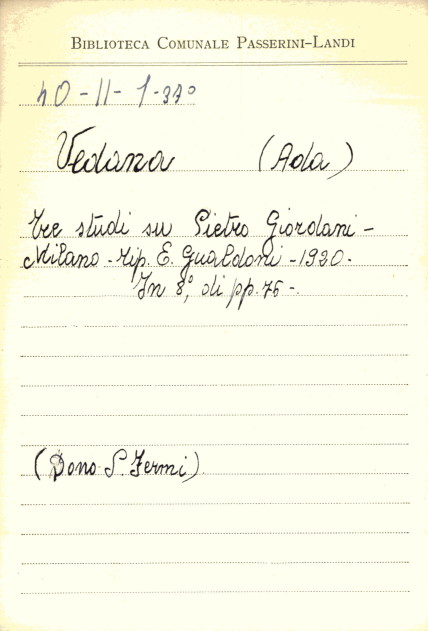 BIBLIOTECA COMUNALE PASSERINI-LANDI
40-II-1-37°
Vedana (Ada)
Tre studi su Pietro Giordani -
Milano - tip. E. Gualdoni - 1920 -
In 8°, di pp. 76 -
(Dono S. Fermi)